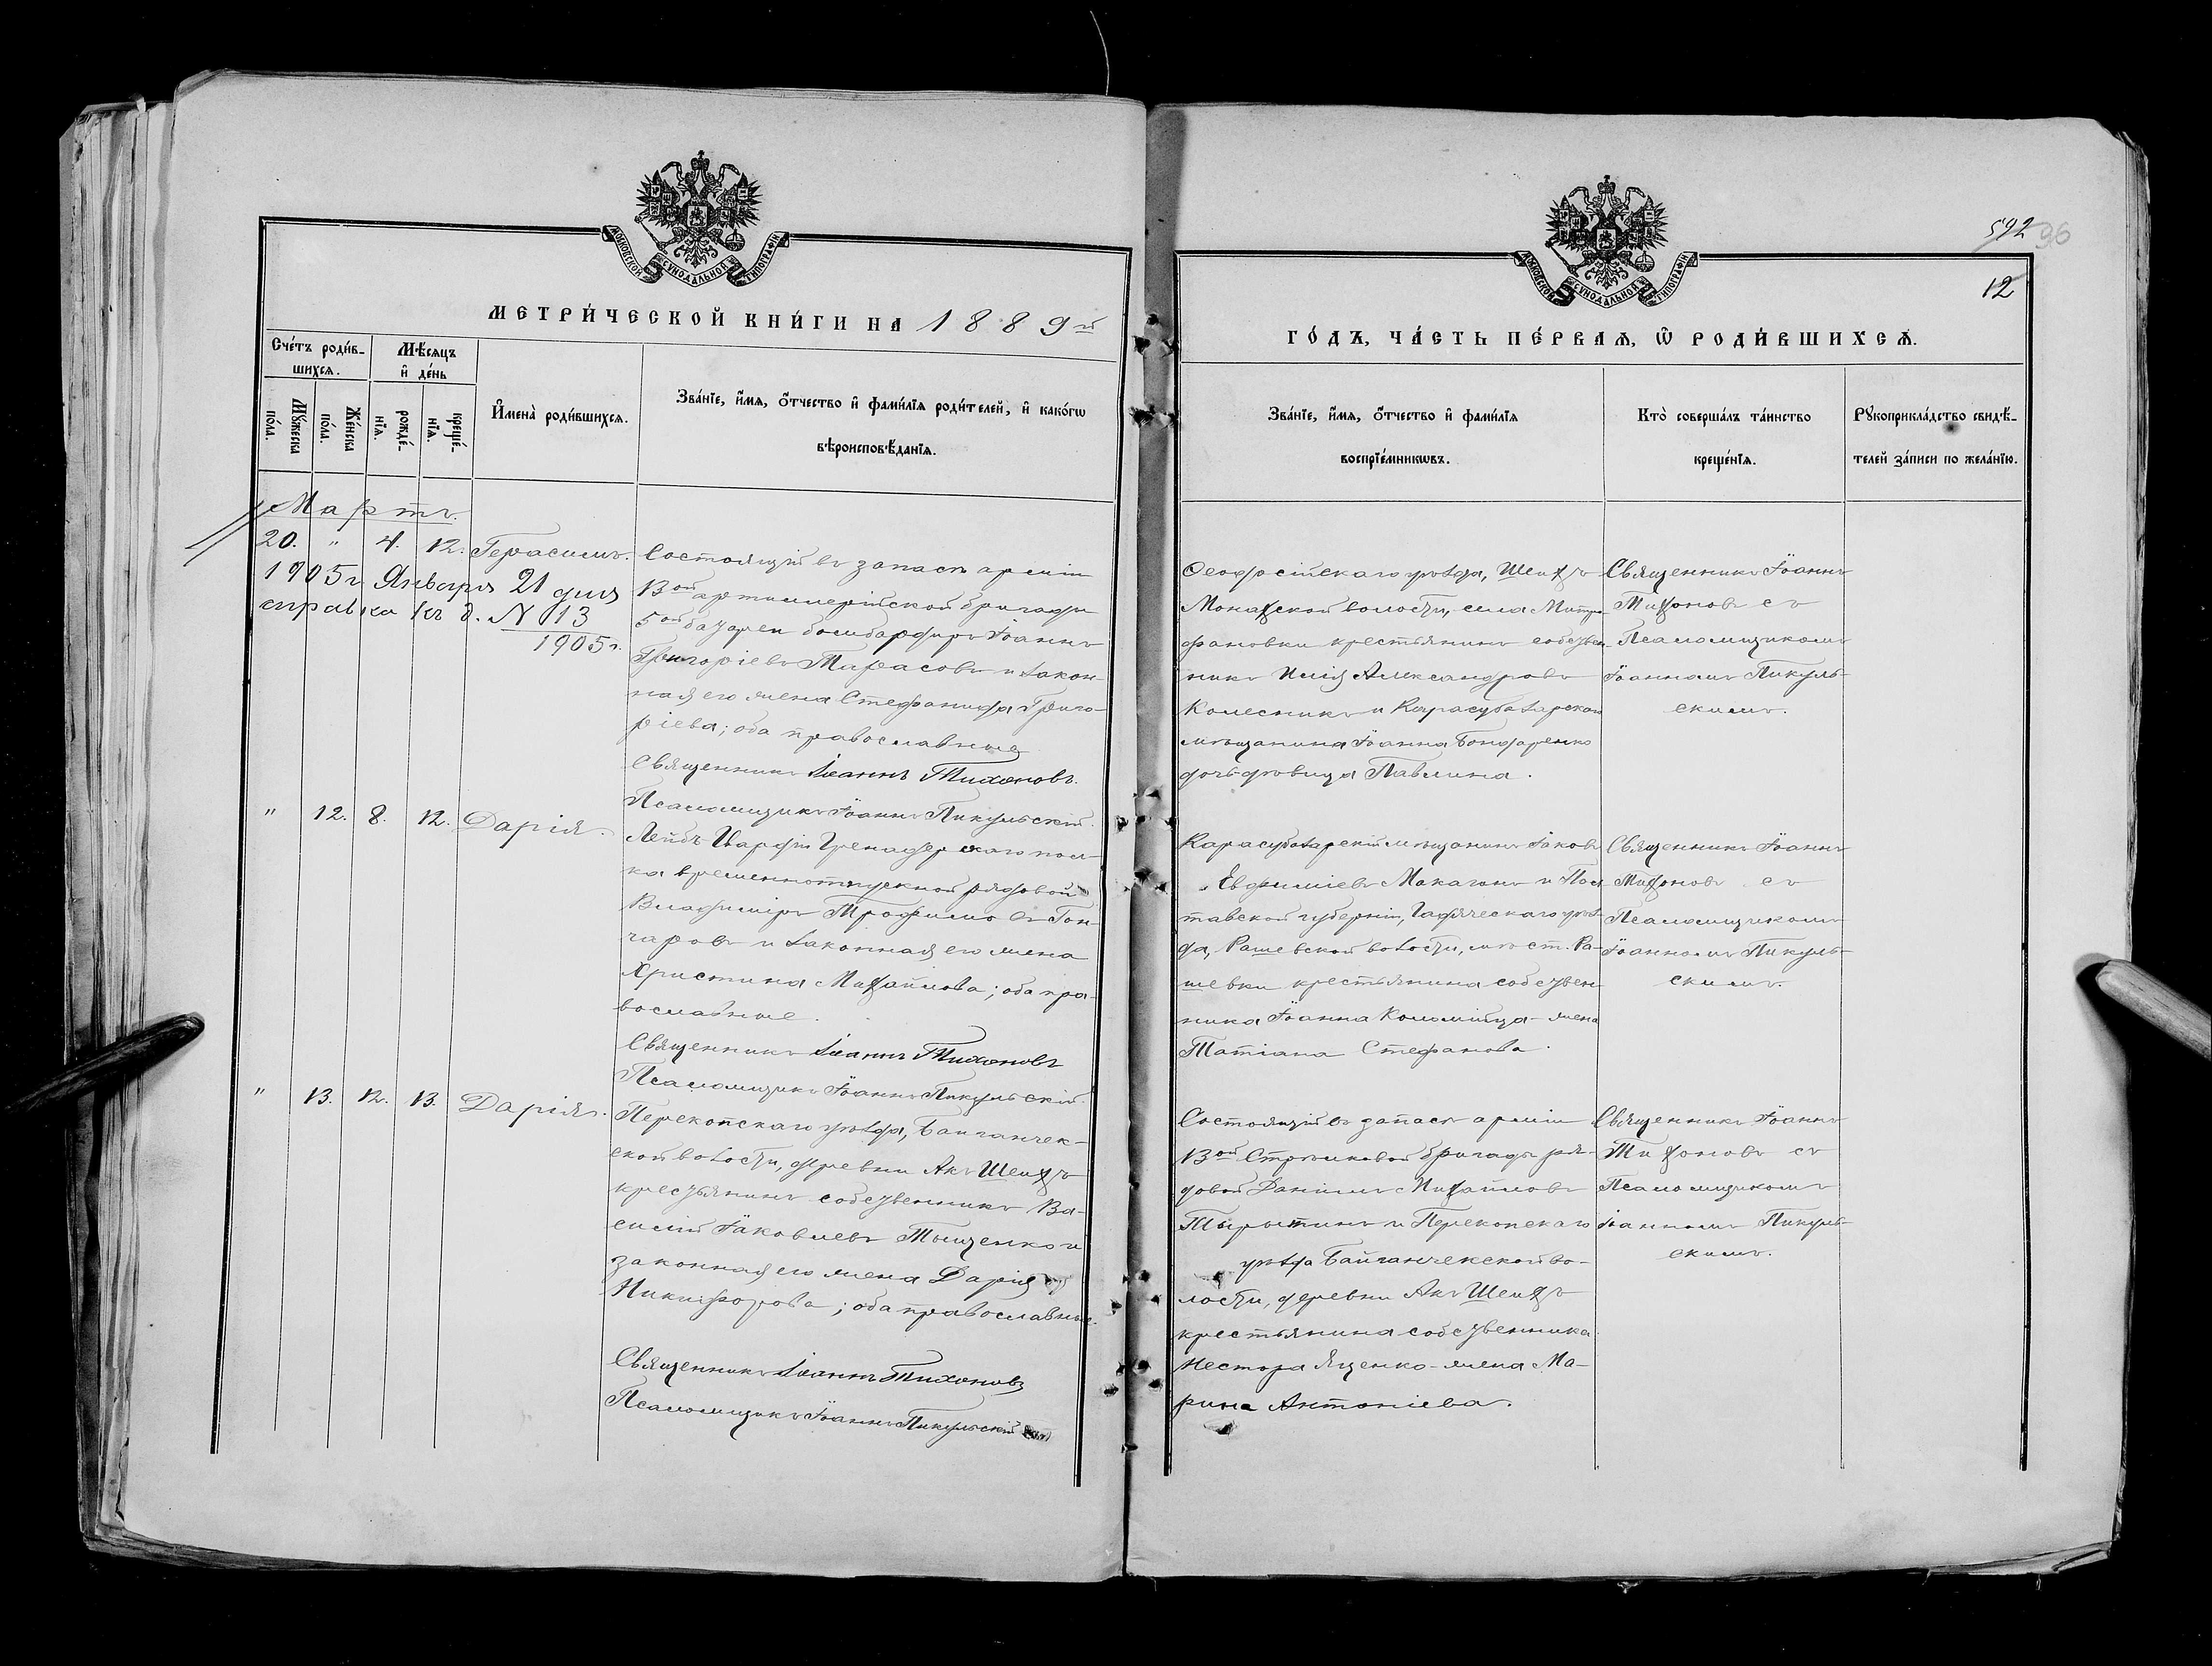 МОСКОВСКОЙ СѴНОДАЛЬНОЙ ТИПОГРАФІИ
МЕТРИ́ЧЕСКОЙ КНИ́ГИ НА 1889й
Сче́тъ роди́в-
шихсѧ.
Мѣ́сѧцъ
и҆ де́нь
Мꙋ́жеска
по́ла.
Же́нска
по́ла.
рожде́-
нїѧ.
креще́-
нїѧ.
И҆мена̀ роди́вшихсѧ.
Зва́нїе, и҆́мѧ, ѻ҆́тчество и҆ фами́лїѧ роди́телей, и҆ како́гѡ
вѣроисповѣ́данїѧ.
Мартъ.
20. " 4. 12. Герасимъ.
1905 г. Января 21 дня
справка къ д. N 13
1905 г.
Состоящій въ запасѣ арміи
13ой артиллерійской бригады
5ой батареи бомбардиръ Іоаннъ
Григоріевъ Тарасовъ и закон-
ная его жена Стефанида Григо-
ріева; оба православные
Священникъ Іоаннъ Тихоновъ.
Псаломщикъ Іоаннъ Пикульскій.
" 12. 8. 12. Дарія.
Лейбъ Гвардіи Гренадерскаго пол-
ка временноотпускной рядовой
Владиміръ Трофимовъ Гон-
чаровъ и законная его жена
Христина Михайлова; оба пра-
вославные.
Священникъ Іоаннъ Тихоновъ
Псаломщикъ Іоаннъ Пикульскій.
" 13. 12. 13. Дарія.
Перекопскаго уѣзда, Байганчек-
ской волости, деревни Акъ Шеихъ
крестьянинъ собственникъ Ва-
силій Іаковлевъ Тыщенко и
законная его жена Дарія
Никифорова; оба православные.
Священникъ Іоаннъ Тихоновъ
Псаломщикъ Іоаннъ Пикульскій
592 96
12
МОСКОВСКОЙ СѴНОДАЛЬНОЙ ТИПОГРАФІИ
ГО́ДЪ, ЧА́СТЬ ПЕ́РВАѦ, Ѽ РОДИ́ВШИХСѦ.
Зва́нїе, и҆́мѧ, ѻ҆́тчество и҆ фами́лїѧ
воспрїе́мникѡвъ.
Кто̀ соверша́лъ та́инство
креще́нїѧ.
Рꙋкоприкла́дство свидѣ́-
телей за́писи по жела́нїю.
Ѳеодосійскаго уѣзда, Шейхъ-
Монахской волости, села Митро-
фановки крестьянинъ собствен-
никъ Илія Александровъ
Колесникъ и Карасубазарскаго
мѣщанина Іоанна Бондаренко
дочь дѣвица Павлина.
Священникъ Іоаннъ
Тихоновъ съ
Псаломщикомъ
Іоанномъ Пикуль-
скимъ.
Карасубазарскій мѣщанинъ Іаковъ
Евфиміевъ Макагонъ и Пол-
тавской губерніи, Гадяческаго уѣз-
да, Рашевской волости, мѣст. Ра-
шевки крестьянина собствен-
ника Іоанна Коломійца - жена
Татіана Стефанова.
Священникъ Іоаннъ
Тихоновъ съ
Псаломщикомъ
Іоанномъ Пикуль-
скимъ.
Состоящій въ запасѣ арміи
13ой Стрѣлковой бригады ря-
довой Даніилъ Михайловъ
и Перекопскаго
уѣзда Байганчекской во-
лости, деревни Акъ Шеихъ
крестьянина собственника
Нестора Яценко - жена Ма-
рина Антоніева.
Священникъ Іоаннъ
Тихоновъ съ
Псаломщикомъ
Іоанномъ Пикуль-
скимъ.